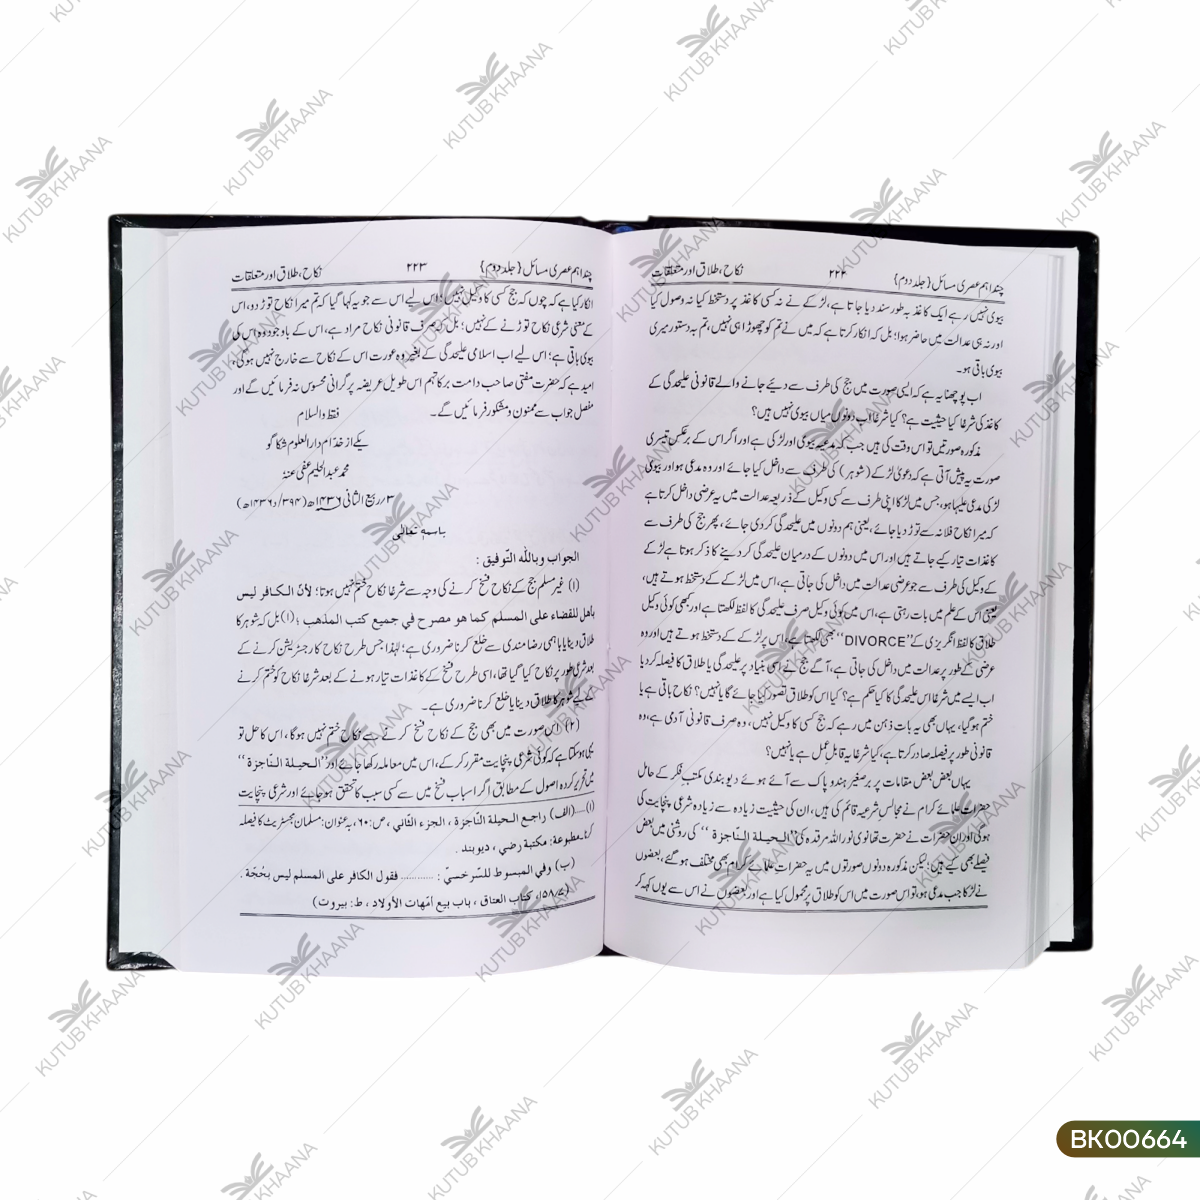 چند اہم عصری مسائل {جلد دوم} ۲۲۲ نکاح، طلاق اور متعلقات
بیوی نہیں رہے ایک کاغذ بہ طور سند دیا جاتا ہے، لڑکے نے نہ کسی کاغذ پر دستخط کیا نہ وصول کیا
اور نہ ہی عدالت میں حاضر ہوا؛ بل کہ انکار کرتا ہے کہ میں نے تم کو چھوڑا ہی نہیں، تم بہ دستور میری
بیوی باقی ہو۔
اب پوچھنا یہ ہے کہ ایسی صورت میں جج کی طرف سے دیئے جانے والے قانونی علیحدگی کے
کاغذ کی شرعًا کیا حیثیت ہے؟ کیا شرعًا اب دونوں میاں بیوی نہیں ہیں؟
مذکورہ صورتیں تو اس وقت کی ہیں جب کہ مدعیہ بیوی اور لڑکی ہے اور اگر اس کے برعکس تیسری
صورت یہ پیش آتی ہے کہ دعویٰ لڑکے (شوہر) کی طرف سے داخل کیا جائے اور وہ مدعی ہو اور بیوی
لڑکی مدعی علیہا ہو، جس میں لڑکا اپنی طرف سے کسی وکیل کے ذریعہ عدالت میں یہ عرضی داخل کرتا ہے
کہ میرا نکاح فلانہ سے توڑ دیا جائے، یعنی ہم دونوں میں علیحدگی کردی جائے، پھر جج کی طرف سے
کاغذات تیار کیے جاتے ہیں اور اس میں دونوں کے درمیان علیحدگی کردینے کا ذکر ہوتا ہے لڑکے
کے وکیل کی طرف سے جو عرضی عدالت میں داخل کی جاتی ہے، اس میں لڑکے کے دستخط ہوتے ہیں،
یعنی اس کے علم میں بات رہتی ہے، اس میں کوئی وکیل صرف علیحدگی کا لفظ لکھتا ہے اور کبھی کوئی وکیل
طلاق کا لفظ انگریزی کے ’’DIVORCE‘‘ بھی لکھتا ہے، اس پر لڑکے کے دستخط ہوتے ہیں اور وہ
عرضی کے طور پر عدالت میں داخل کی جاتی ہے، آگے جج نے اسی بنیاد پر علیحدگی یا طلاق کا فیصلہ کردیا
اب ایسے میں شرعًا اس علیحدگی کا کیا حکم ہے؟ کیا اس کو طلاق تصور کیا جائے گا یا نہیں؟ نکاح باقی ہے یا
ختم ہوگیا، یہاں بھی یہ بات ذہن میں رہے کہ جج کسی کا وکیل نہیں، وہ صرف قانونی آدمی ہے، وہ
قانونی طور پر فیصلہ صادر کرتا ہے، کیا شرعًا یہ قابل عمل ہے یا نہیں؟
یہاں بعض بعض مقامات پر برصغیر ہندوپاک سے آئے ہوئے دیوبندی مکتبِ فکر کے حامل
حضرات علمائے کرام نے مجالس شرعیہ قائم کی ہیں، ان کی حیثیت زیادہ سے زیادہ شرعی پنچایت کی
ہوگی اور ان حضرات نے حضرت تھانوی نور اللہ مرقدہ کی ’’الحیلۃ النّاجزۃ‘‘ کی روشنی میں بعض
فیصلے بھی کیے ہیں؛ لیکن مذکورہ دونوں صورتوں میں یہ حضرات علمائے کرام بھی مختلف ہوگئے، بعضوں
نے لڑکا جب مدعی ہو، تو اس صورت میں اس کو طلاق پر محمول کیا ہے اور بعضوں نے اس سے یوں کہہ کر
چند اہم عصری مسائل {جلد دوم} ۲۲۳ نکاح، طلاق اور متعلقات
انکار کیا ہے کہ چوں کہ جج کسی کا وکیل نہیں؛ اس لیے اس سے جو یہ کہا گیا کہ تم میرا نکاح توڑ دو، اس
کے معنی شرعی نکاح توڑنے کے نہیں؛ بل کہ صرف قانونی نکاح مراد ہے، اس کے باوجود وہ اس کی
بیوی باقی ہے؛ اس لیے اب اسلامی علیحدگی کے بغیر وہ عورت اس کے نکاح سے خارج نہیں ہوگی،
امید ہے کہ حضرت مفتی صاحب دامت برکاتہم اس طویل عریضہ پر گرانی محسوس نہ فرمائیں گے اور
مفصل جواب سے ممنون و مشکور فرمائیں گے۔
فقط والسلام
یکے از خدّام دارالعلوم شکاگو
محمد عبدالحلیم عفی عنہ
۳/ربیع الثانی ۱۴۳۶ھ (۳۹۴/د ۱۴۳۶ھ)
باسمہ تعالی
الجواب وباللّٰہ التّوفیق :
(۱) غیر مسلم جج کے نکاح فسخ کرنے کی وجہ سے شرعًا نکاح ختم نہیں ہوتا؛ لأنّ الکافر لیس
بأھل للقضاء علی المسلم کما ھو مصرح في جمیع کتب المذھب ؛(۱) بل کہ شوہر کا
طلاق دینا یا باہمی رضامندی سے خلع کرنا ضروری ہے؛ لہٰذا جس طرح نکاح کا رجسٹریشن کرنے کے
بعد شرعی طور پر نکاح کیا گیا تھا، اسی طرح فسخ کے کاغذات تیار ہونے کے بعد شرعًا نکاح کو ختم کرنے
کے لیے شوہر کا طلاق دینا یا خلع کرنا ضروری ہے۔
(۲) اس صورت میں بھی جج کے نکاح فسخ کرنے سے نکاح ختم نہیں ہوگا، اس کا حل تو
یہی ہوسکتا ہے کہ کوئی شرعی پنچایت مقرر کرکے، اس میں معاملہ رکھا جائے اور ’’الحیلۃ النّاجزۃ‘‘
میں تحریر کردہ اصول کے مطابق اگر اسباب فسخ میں سے کسی سبب کا تحقق ہوجائے اور شرعی پنچایت
(۱)....(الف) راجع الحیلۃ النّاجزۃ ، الجزء الثّاني ، ص:۶۰، بہ عنوان: مسلمان مجسٹریٹ کا فیصلہ
کرنا۔ مطبوعۃ: مکتبۃ رضي ، دیوبند .
(ب) وفي المبسوط للسّرخسيّ : ............ فقول الکافر علی المسلم لیس بحُجّۃ .
(۱۵۸/۷، کتاب العتاق ، باب بیع أمّھات الأولاد ، ط: بیروت)
KUTUB KHAANA
BK00664